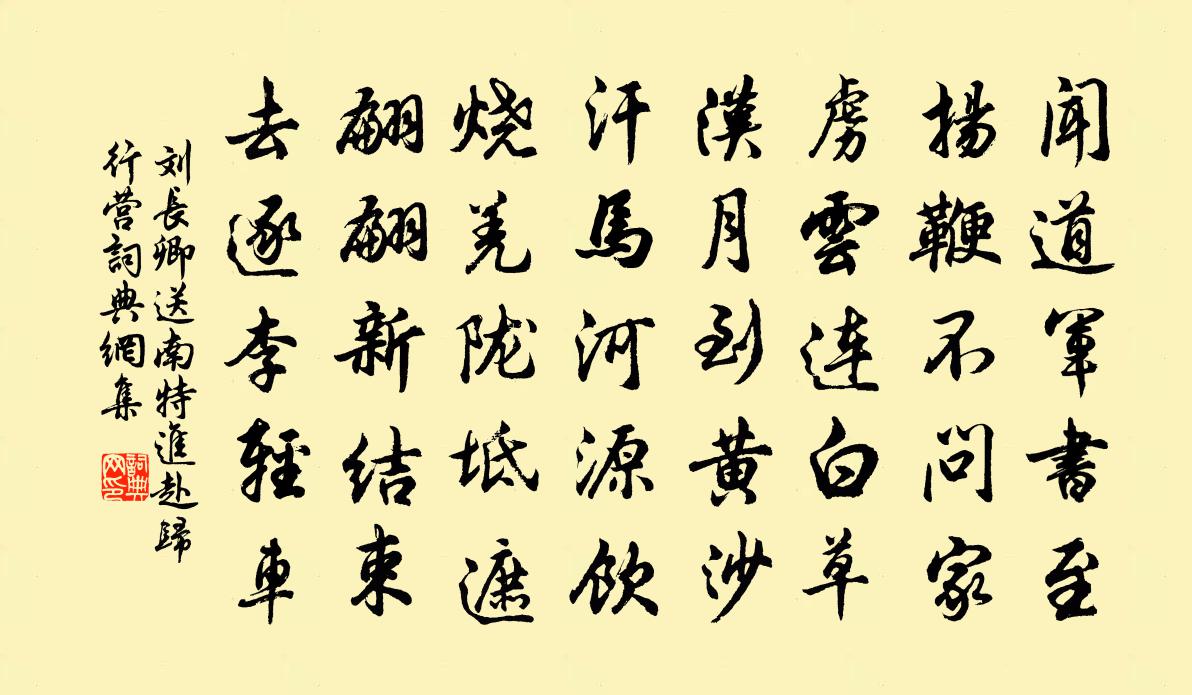 聞道軍書至
揚鞭不問家
虜雲連白草
漢月到黄沙
汗馬河源飲
烧羌陇坻遮
翩翩新結束
去逐李輕車
刘長卿送南特進赴歸
行营詞典網集
詞典网印